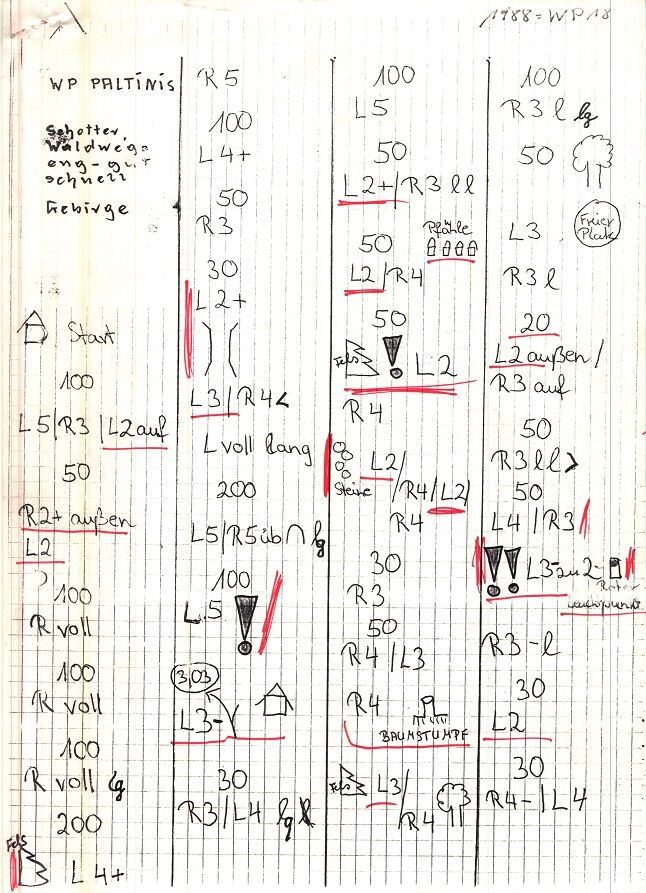 1988 = WP 18
WP PALTINIS
Schotter
Waldwege
eng - gut
schnell
Gebirge
Start
100
L5/R3/L2 auf
50
R2+ außen
L2
100
R voll
100
R voll
100
R voll lg
200
Fels
L4+
R5
100
L4+
50
R3
30
L2+
L3/R4<
L voll lang
200
L5/R5 üb ∩ lg
100
L5 !
3,03
L3-
30
R3/L4 lg
100
L5
50
L2+/R3 ll
Pfähle
50
L2/R4
50
Fels ! L2
R4
L2/
Steine
R4/L2/
R4
30
R3
50
R4/L3
R4
BAUMSTUMPF
Fels L3/
R4
100
R3 l lg
50
L3
Freier
Platz
R3 l
20
L2 außen/
R3 auf
50
R3 ll >
50
L4/R3
!! L3-zu 2-
Roter
Leuchtpunkt
R3-l
30
L2
30
R4-/L4